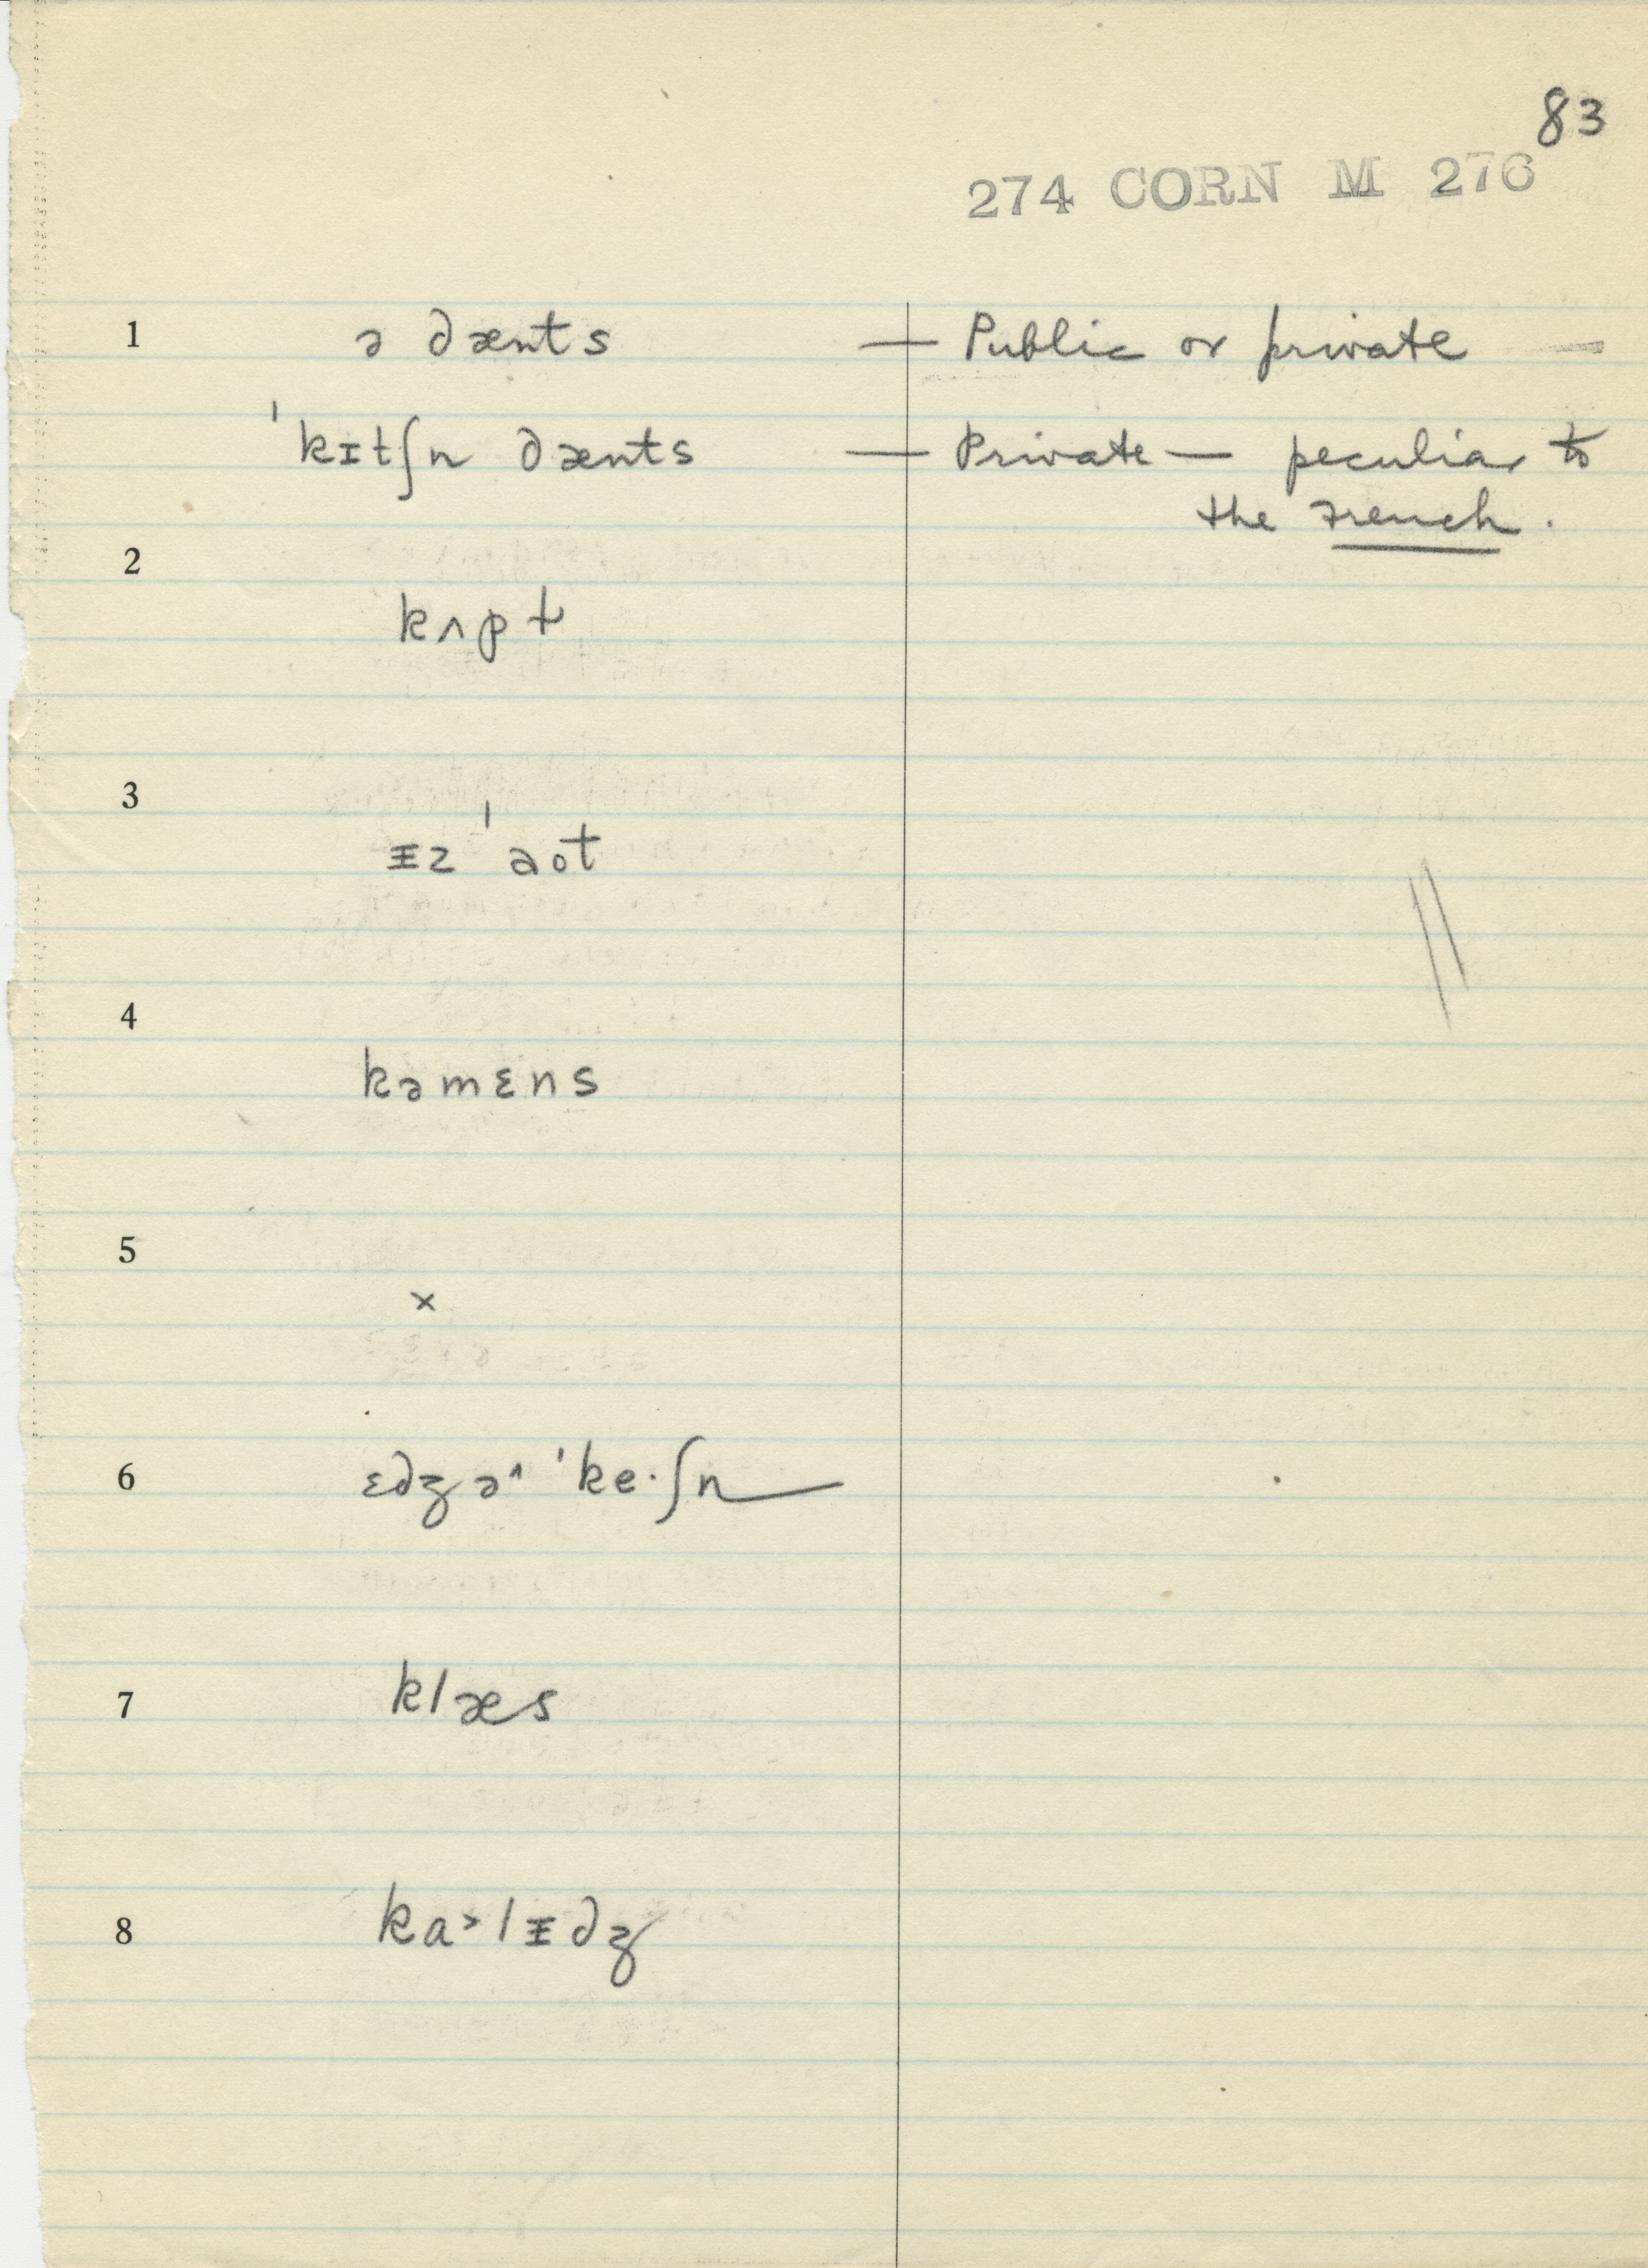 83
274 CORN M 276
1 ə dænts — Public or private —
ˈkɪtʃn dænts — Private — peculiar to
the French.
2
kʌpt
3
ɪz ˈaot
4
kəmɛns
5
×
6 ɛdʒəˈˈke·ʃn
7 klæs
8 ka>lɪdʒ